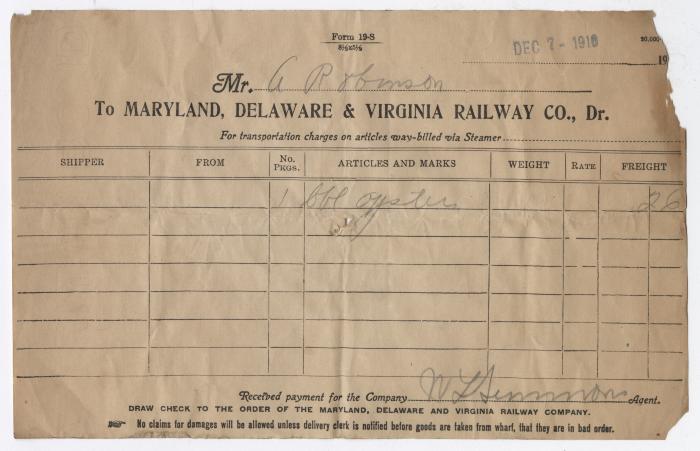 Form 19-S
8½x5½
20,000-
DEC 7- 1916
19
Mr. A Robinson
To MARYLAND, DELAWARE & VIRGINIA RAILWAY CO., Dr.
For transportation charges on articles way-billed via Steamer
SHIPPER FROM No. Pkgs. ARTICLES AND MARKS WEIGHT RATE FREIGHT
1 bbl oysters 26
Received payment for the Company W L Agent.
DRAW CHECK TO THE ORDER OF THE MARYLAND, DELAWARE AND VIRGINIA RAILWAY COMPANY.
No claims for damages will be allowed unless delivery clerk is notified before goods are taken from wharf, that they are in bad order.